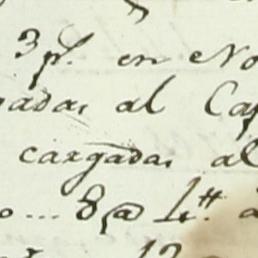 3 p.s en No
gadas al Cap
cargadas al
o... 8@ 4tt a
12